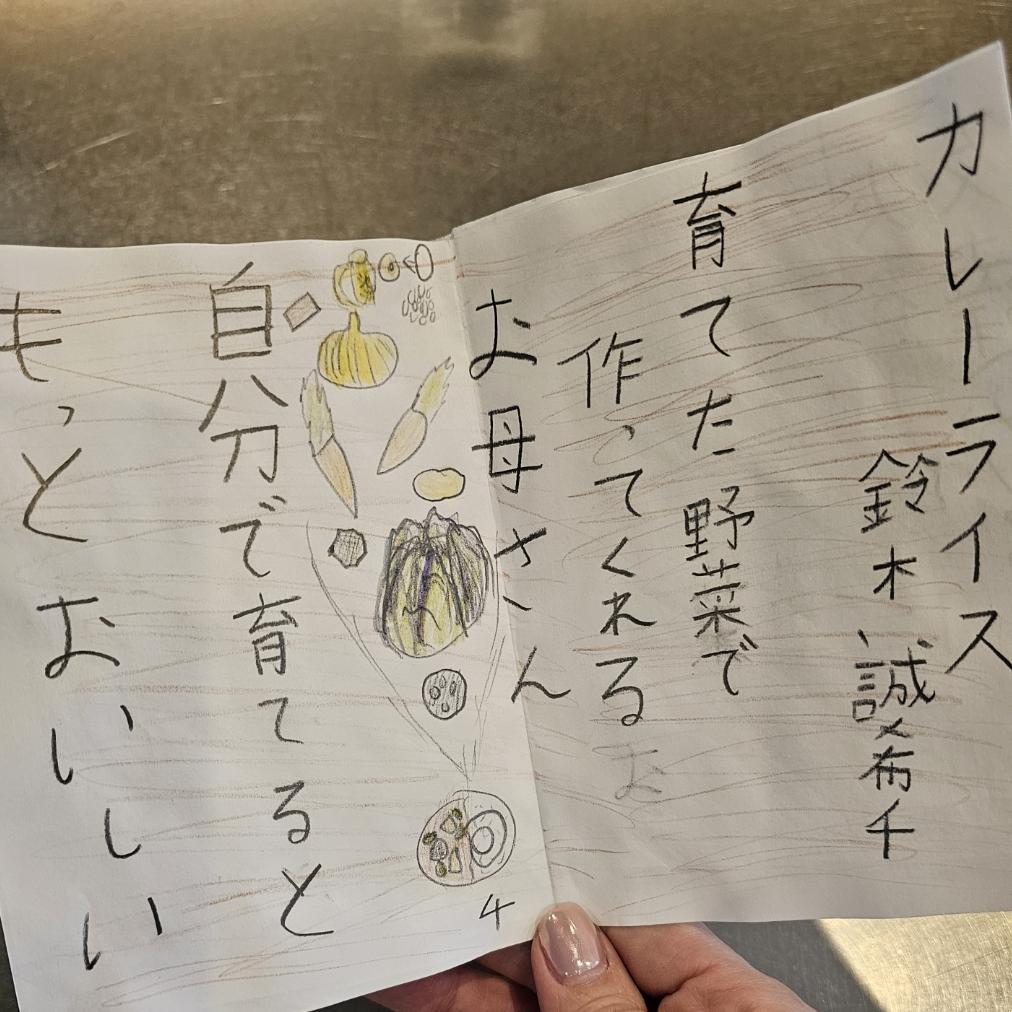 カレーライス
鈴木誠希千
育てた野菜で
作ってくれる
お母さん
4
自分で育てると
もっとおいしい